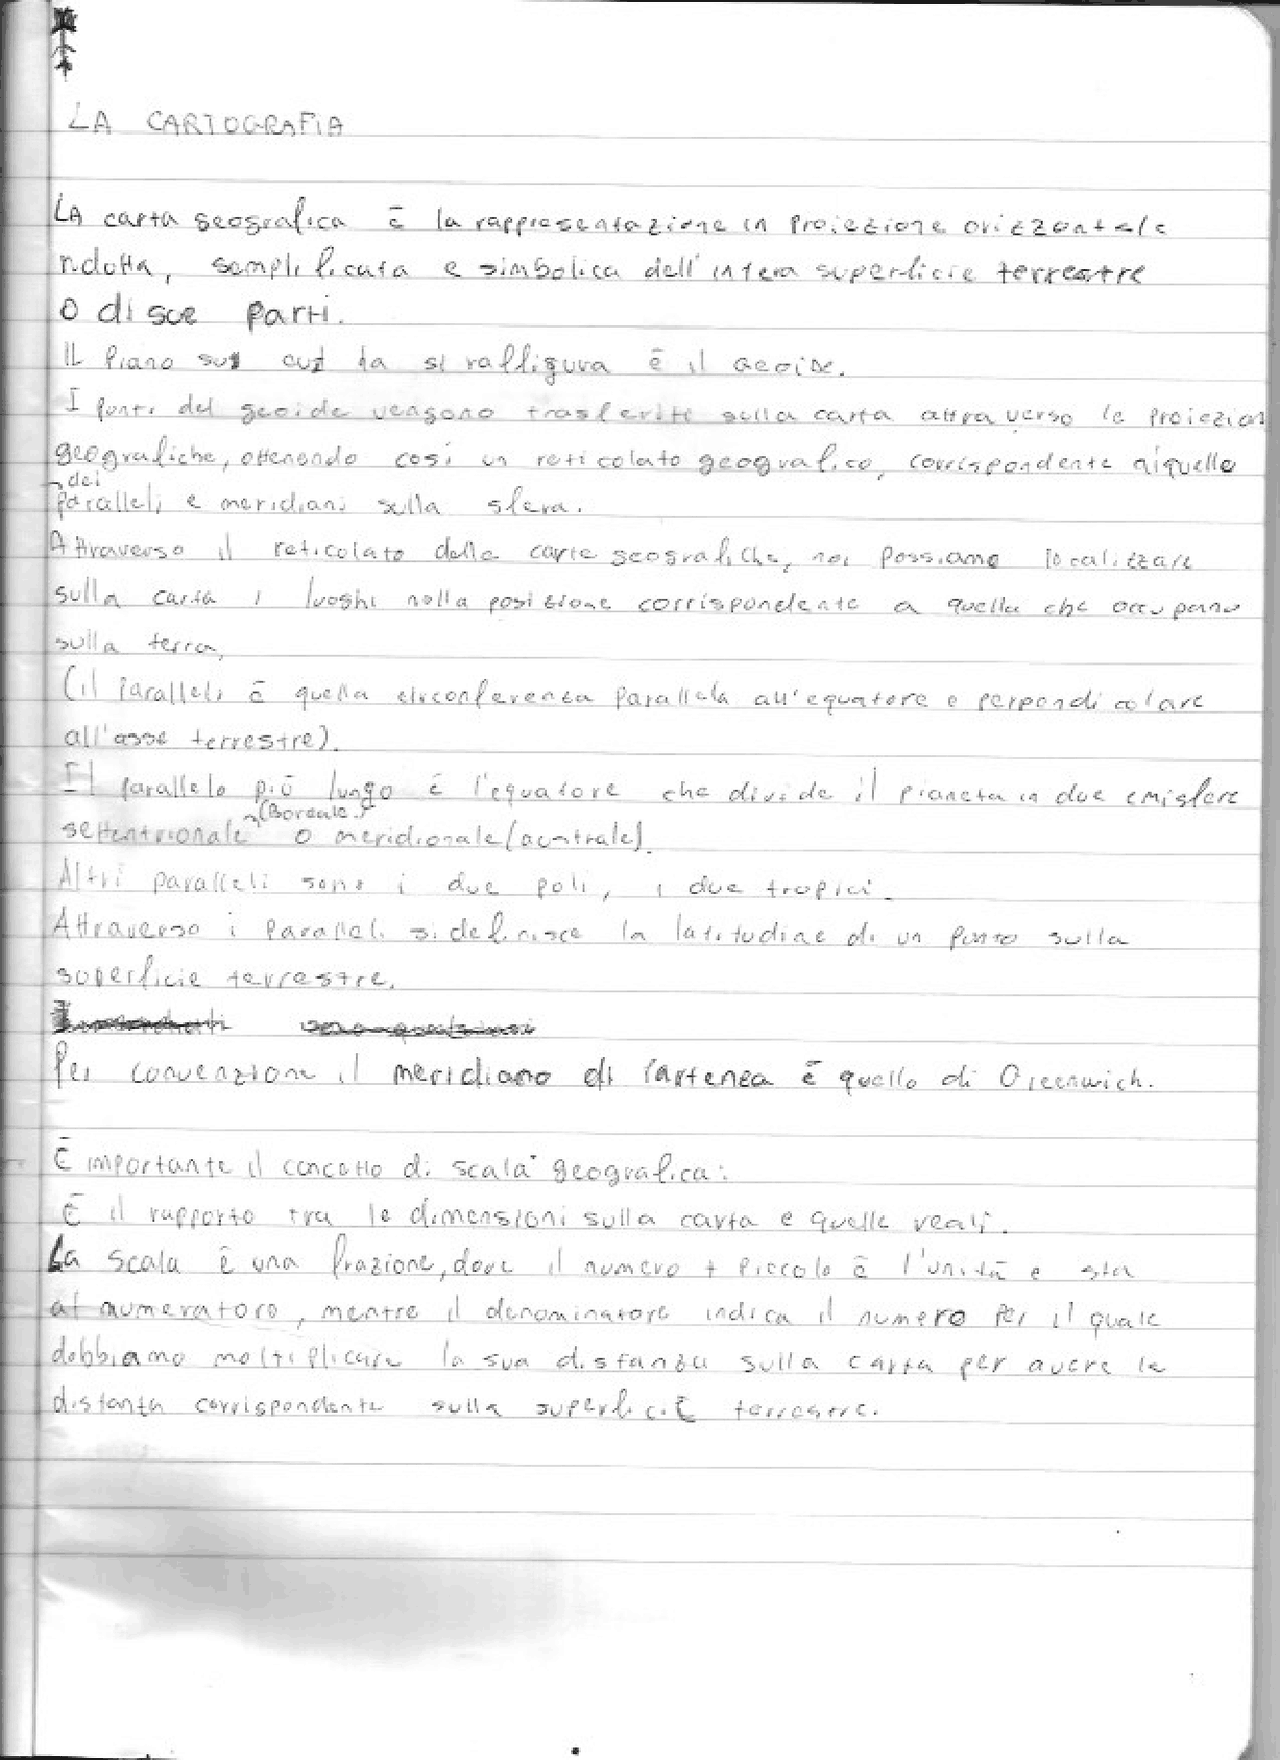 LA CARTOGRAFIA
LA carta geografica è la rappresentazione in proiezione orizzontale
ridotta, semplificata e simbolica dell'intera superficie terrestre
o di sue parti.
IL piano su cui la si raffigura è il geoide.
I punti del geoide vengono trasferiti sulla carta attraverso le proiezioni
geografiche, ottenendo così un reticolato geografico, corrispondente a quello
dei
paralleli e meridiani sulla sfera.
Attraverso il reticolato delle carte geografiche, noi possiamo localizzare
sulla carta i luoghi nella posizione corrispondente a quella che occupano
sulla terra.
(il Paralleli è quella circonferenza parallela all'equatore e perpendicolare
all'asse terrestre).
Il parallelo più lungo è l'equatore che divide il pianeta in due emisfere
(Boreale)
settentrionale o meridionale (australe).
Altri paralleli sono i due poli, i due tropici.
Attraverso i Paralleli si definisce la latitudine di un punto sulla
superficie terrestre.
Per convenzione il meridiano di Partenza è quello di Greenwich.
È importante il concetto di scala geografica:
È il rapporto tra le dimensioni sulla carta e quelle reali.
La scala è una frazione, dove il numero + piccolo è l'unità e sta
al numeratore, mentre il denominatore indica il numero per il quale
dobbiamo moltiplicare la sua distanza sulla carta per avere la
distanza corrispondente sulla superficie terrestre.